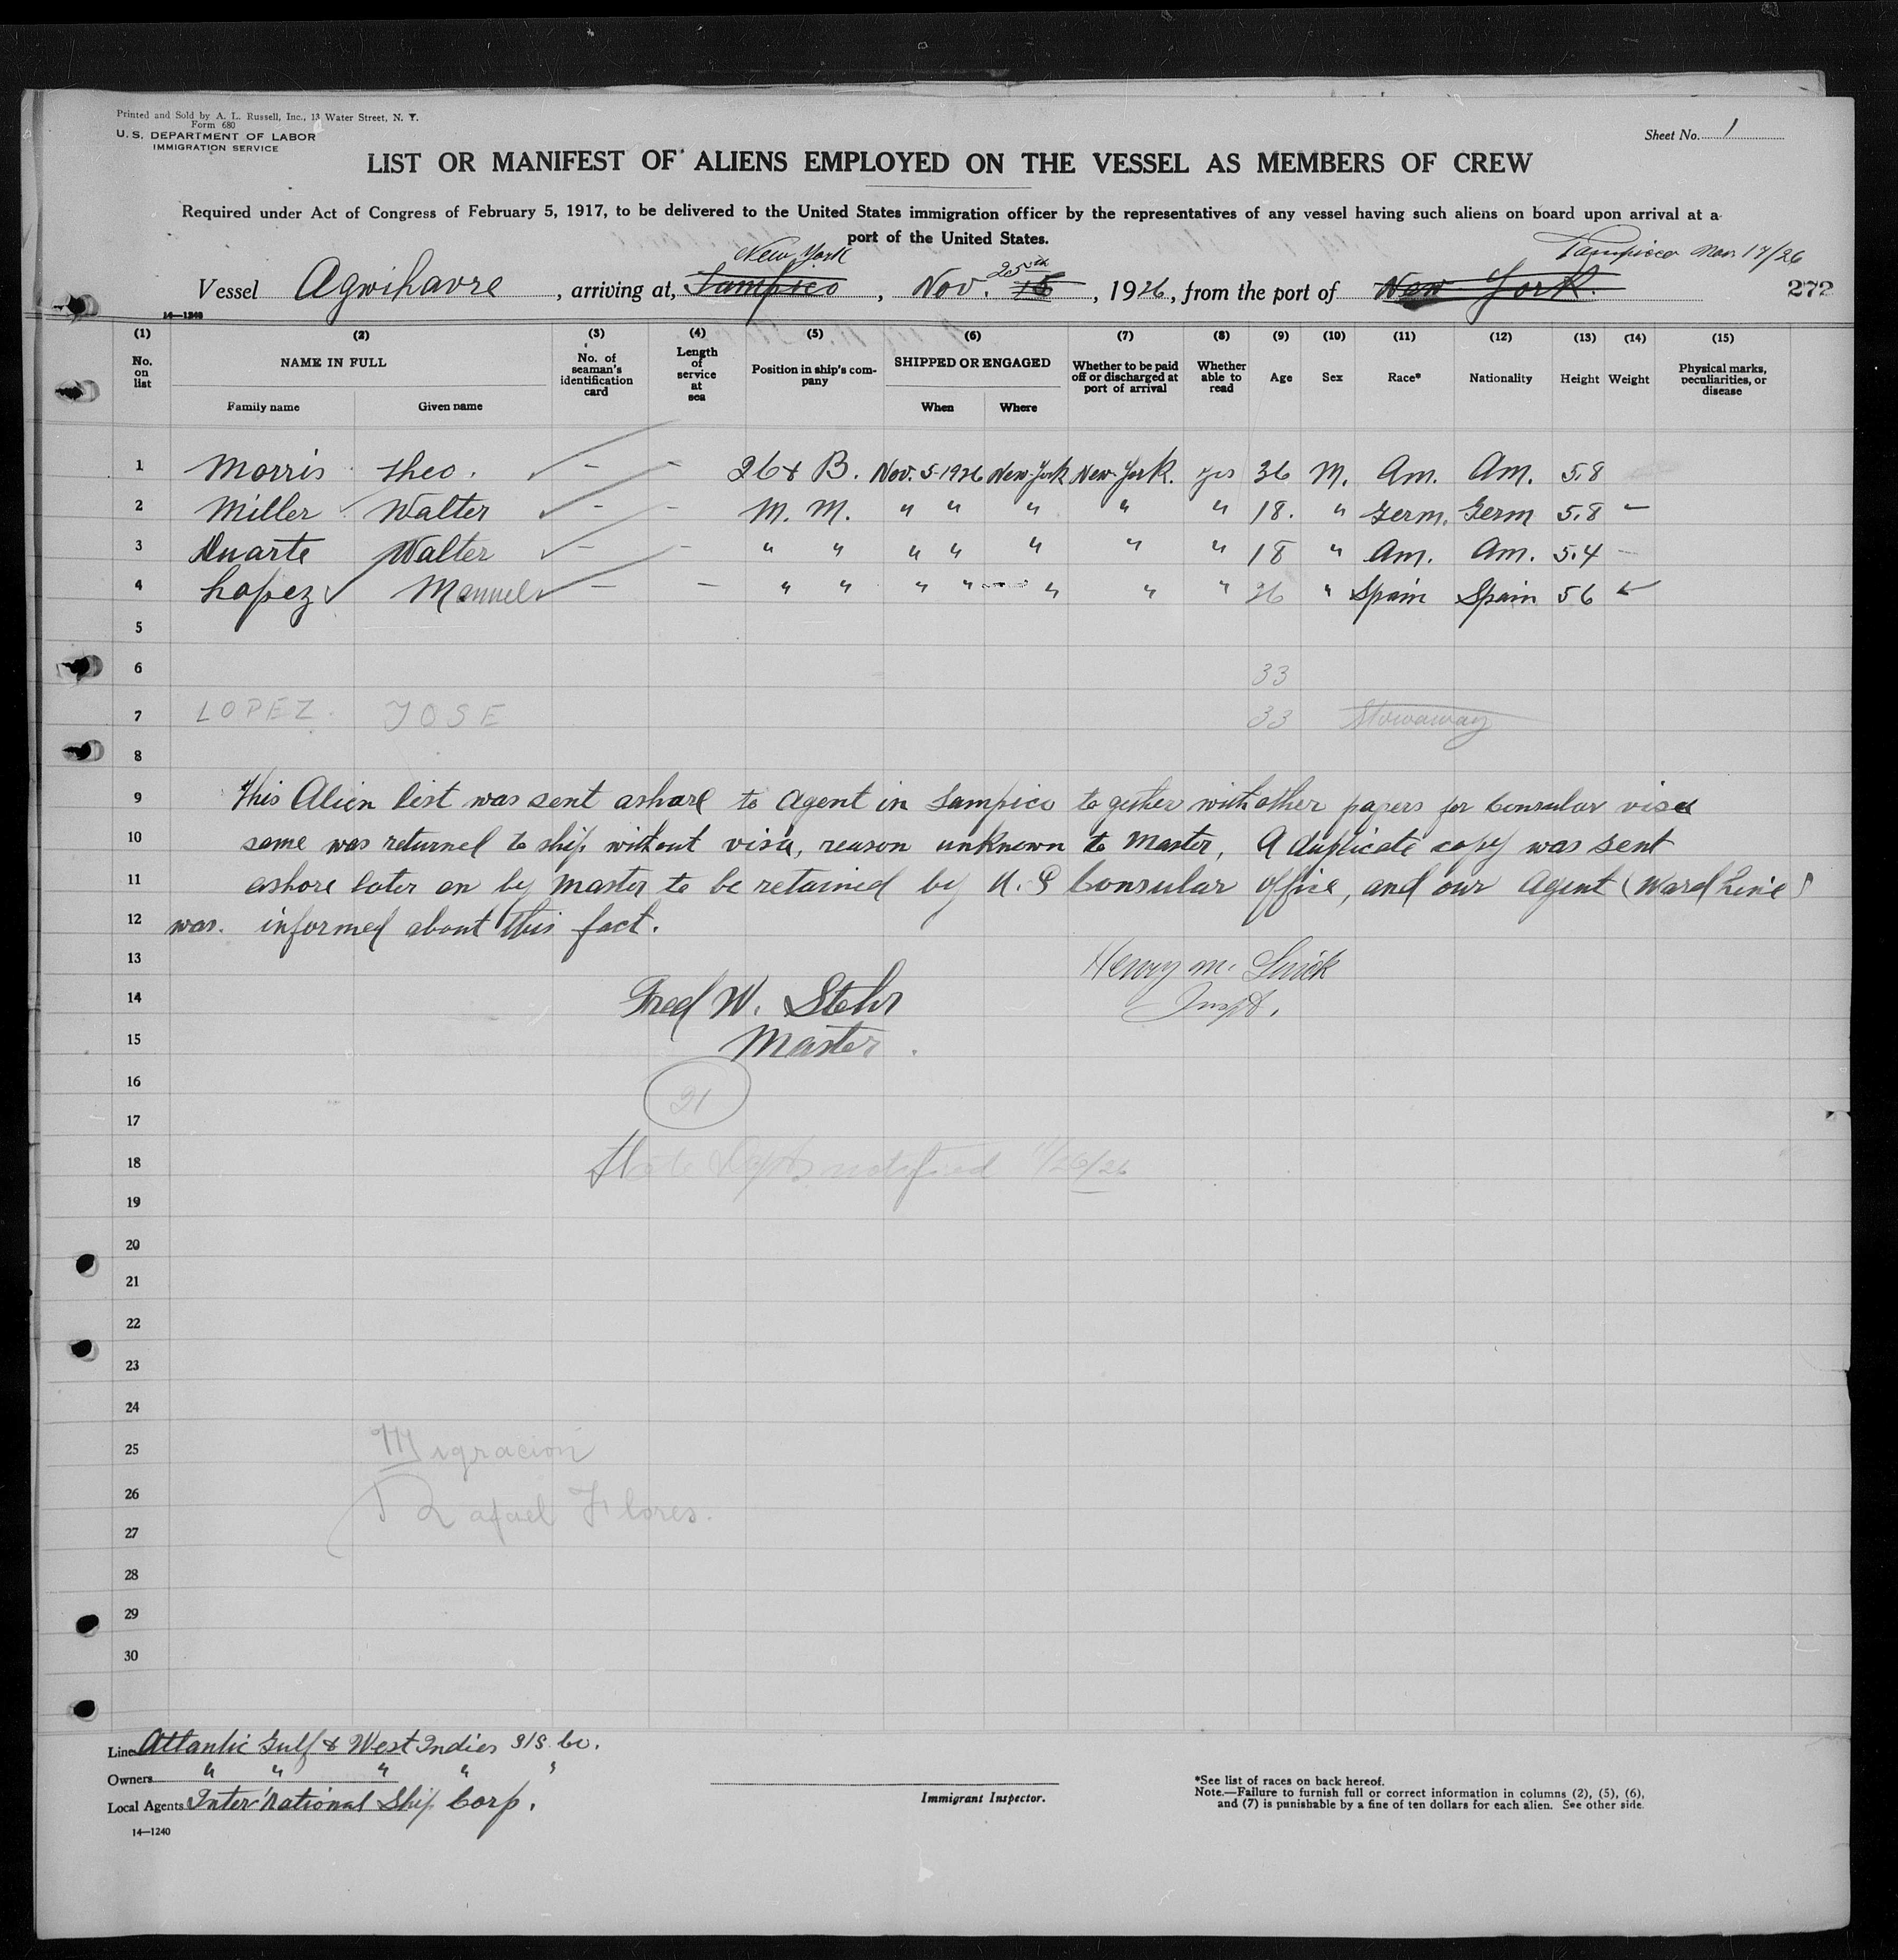 Printed and Sold by A. L. Russell, Inc., 13 Water Street, N. Y.
Form 680
U. S. DEPARTMENT OF LABOR
IMMIGRATION SERVICE
Sheet No. 1
LIST OR MANIFEST OF ALIENS EMPLOYED ON THE VESSEL AS MEMBERS OF CREW
Required under Act of Congress of February 5, 1917, to be delivered to the United States immigration officer by the representatives of any vessel having such aliens on board upon arrival at a
port of the United States.
New York 25th Tampico Nov 17/26
Vessel Agwihavre, arriving at, Tampico, Nov. 16, 1926, from the port of New York. 272
14—1240
(1) (2) (3) (4) (5) (6) (7) (8) (9) (10) (11) (12) (13) (14) (15)
No. on list NAME IN FULL No. of seaman's identification card Length of service at sea Position in ship's company SHIPPED OR ENGAGED Whether to be paid off or discharged at port of arrival Whether able to read Age Sex Race* Nationality Height Weight Physical marks, peculiarities, or disease
Family name Given name When Where
1 Morris Theo. – – B. Nov. 5-1926 New-York New-York. yes 36 M. Am. Am. 5.8
2 Miller Walter – – M. M. " " " " " 18. " Germ. Germ 5.8 –
3 Duarte Walter – – " " " " " " " 18 " Am. Am. 5.4 –
4 Lopez Manuel – – " " " " " " " 26 " Spain Spain 56
5
6 33
7 LOPEZ. JOSE 33 Stowaway
8
9 This Alien list was sent ashore to Agent in Tampico together with other papers for Consular visa
10 same was returned to ship without visa, reason unknown to Master. A duplicate copy was sent
11 ashore later on by Master to be retained by U.S Consular office, and our Agent (Ward Line)
12 was. informed about this fact.
13 Henry M.
14 Fred W. Stehr Inspt.
15 Master.
16
21
17
18 State Dept notified 11/26/26
19
20
21
22
23
24
25 Migracion
26 Rafael Flores.
27
28
29
30
Line Atlantic Gulf & West Indies S/S. Co.
Owners " " " " "
Local Agents International Ship Corp.
Immigrant Inspector.
*See list of races on back hereof.
Note.—Failure to furnish full or correct information in columns (2), (5), (6),
and (7) is punishable by a fine of ten dollars for each alien. See other side.
14—1240